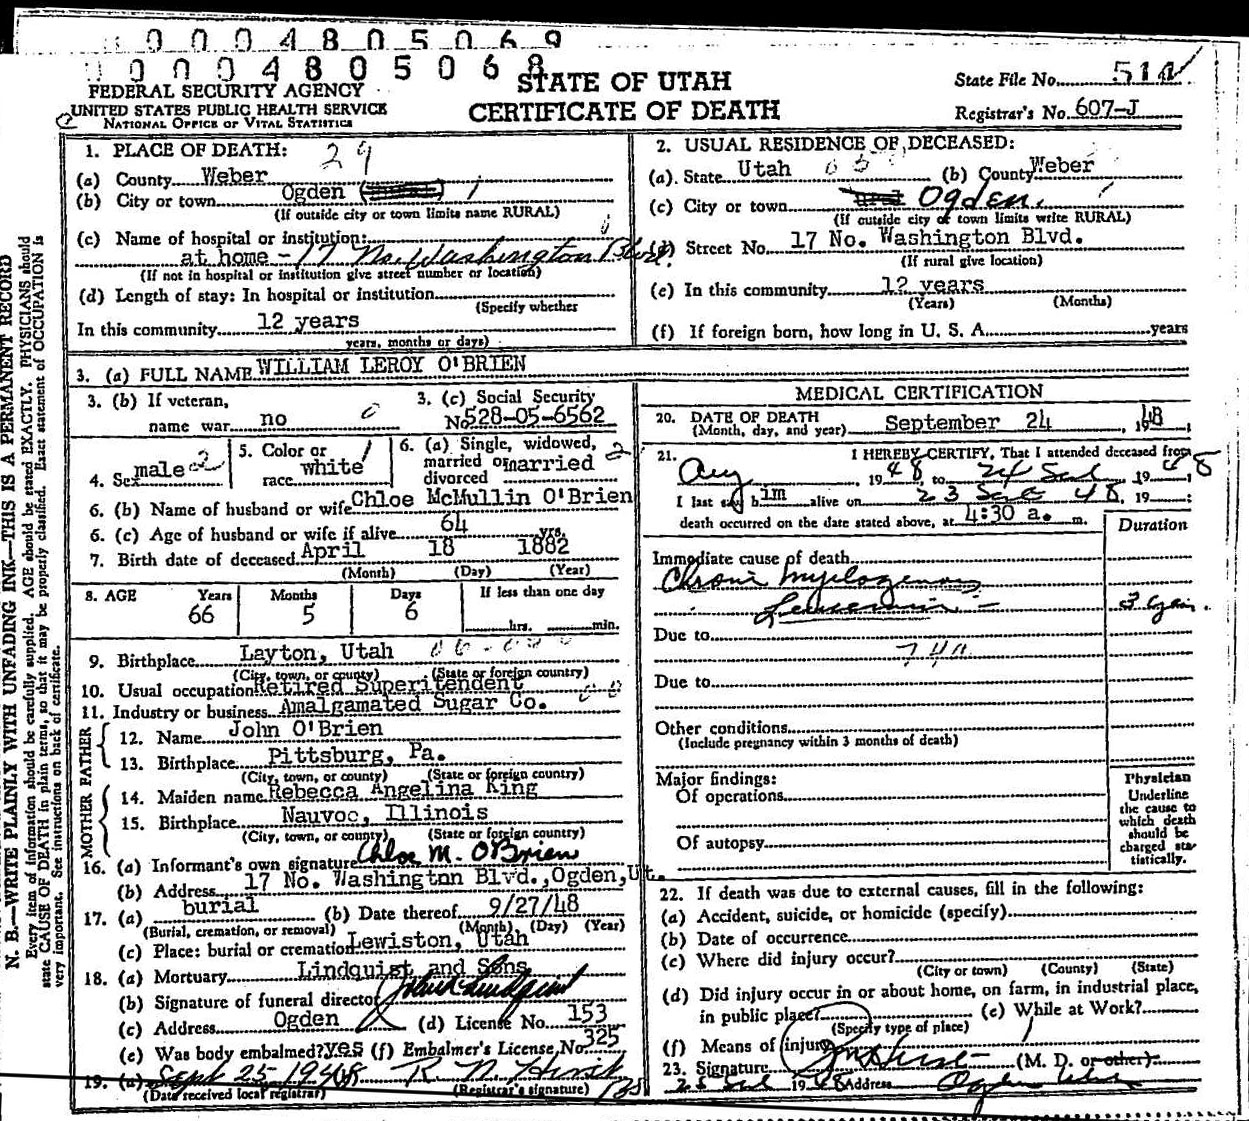 0 0 0 4 8 0 5 0 6 9
0 0 0 4 8 0 5 0 6 8
FEDERAL SECURITY AGENCY
UNITED STATES PUBLIC HEALTH SERVICE
NATIONAL OFFICE OF VITAL STATISTICS
STATE OF UTAH
CERTIFICATE OF DEATH
State File No.
Registrar's No. 607-J
1. PLACE OF DEATH: 29
(a) County Weber
(b) City or town Ogden
(If outside city or town limits name RURAL)
(c) Name of hospital or institution:
at home - 17 No. Washington Blvd.
(If not in hospital or institution give street number or location)
(d) Length of stay: In hospital or institution
(Specify whether
In this community 12 years
years, months or days)
2. USUAL RESIDENCE OF DECEASED:
(a) State Utah (b) County Weber
(c) City or town Ogden.
(If outside city or town limits write RURAL)
(d) Street No. 17 No. Washington Blvd.
(If rural give location)
(e) In this community 12 years
(Years) (Months)
(f) If foreign born, how long in U. S. A. years
3. (a) FULL NAME WILLIAM LEROY O'BRIEN
3. (b) If veteran,
name war no
3. (c) Social Security
No. 528-05-6562
4. Sex male
5. Color or
race white
6. (a) Single, widowed,
married or
divorced married
6. (b) Name of husband or wife Chloe McMullin O'Brien
6. (c) Age of husband or wife if alive 64 yrs.
7. Birth date of deceased April 18 1882
(Month) (Day) (Year)
8. AGE Years Months Days If less than one day
66 5 6 hrs. min.
9. Birthplace Layton, Utah
(City, town, or county) (State or foreign country)
10. Usual occupation Retired Superitendent
11. Industry or business Amalgamated Sugar Co.
FATHER
12. Name John O'Brien
13. Birthplace Pittsburg, Pa.
(City, town, or county) (State or foreign country)
MOTHER
14. Maiden name Rebecca Angelina King
15. Birthplace Nauvoo, Illinois
(City, town, or county) (State or foreign country)
16. (a) Informant's own signature Chloe M. O'Brien
(b) Address 17 No. Washington Blvd., Ogden, Ut.
17. (a) burial (b) Date thereof 9/27/48
(Burial, cremation, or removal) (Month) (Day) (Year)
(c) Place: burial or cremation Lewiston, Utah
18. (a) Mortuary Lindquist and Sons
(b) Signature of funeral director John Lindquist
(c) Address Ogden (d) License No. 153
(e) Was body embalmed? yes (f) Embalmer's License No. 325
19. (a) Sept 25, 1948
(Date received local registrar) (Registrar's signature)
MEDICAL CERTIFICATION
20. DATE OF DEATH
(Month, day, and year) September 24, 1948
21. I HEREBY CERTIFY, That I attended deceased from
Aug, 1948 to 24 1948
I last saw him alive on 23 48, 19
death occurred on the date stated above, at 4:30 a. m.
Duration
Immediate cause of death
Chronic Myelogenous
Leucemia -
Due to
Due to
Other conditions
(Include pregnancy within 3 months of death)
Major findings:
Of operations
Of autopsy
Physician
Underline
the cause to
which death
should be
charged sta-
tistically.
22. If death was due to external causes, fill in the following:
(a) Accident, suicide, or homicide (specify)
(b) Date of occurrence
(c) Where did injury occur?
(City or town) (County) (State)
(d) Did injury occur in or about home, on farm, in industrial place,
in public place? (e) While at Work?
(Specify type of place)
(f) Means of injury
23. Signature (M. D. or other)
1948 Address Ogden Utah
N. B.—WRITE PLAINLY WITH UNFADING INK—THIS IS A PERMANENT RECORD
Every item of information should be carefully supplied. AGE should be stated EXACTLY. PHYSICIANS should
state CAUSE OF DEATH in plain terms, so that it may be properly classified. Exact statement of OCCUPATION is
very important. See instructions on back of certificate.